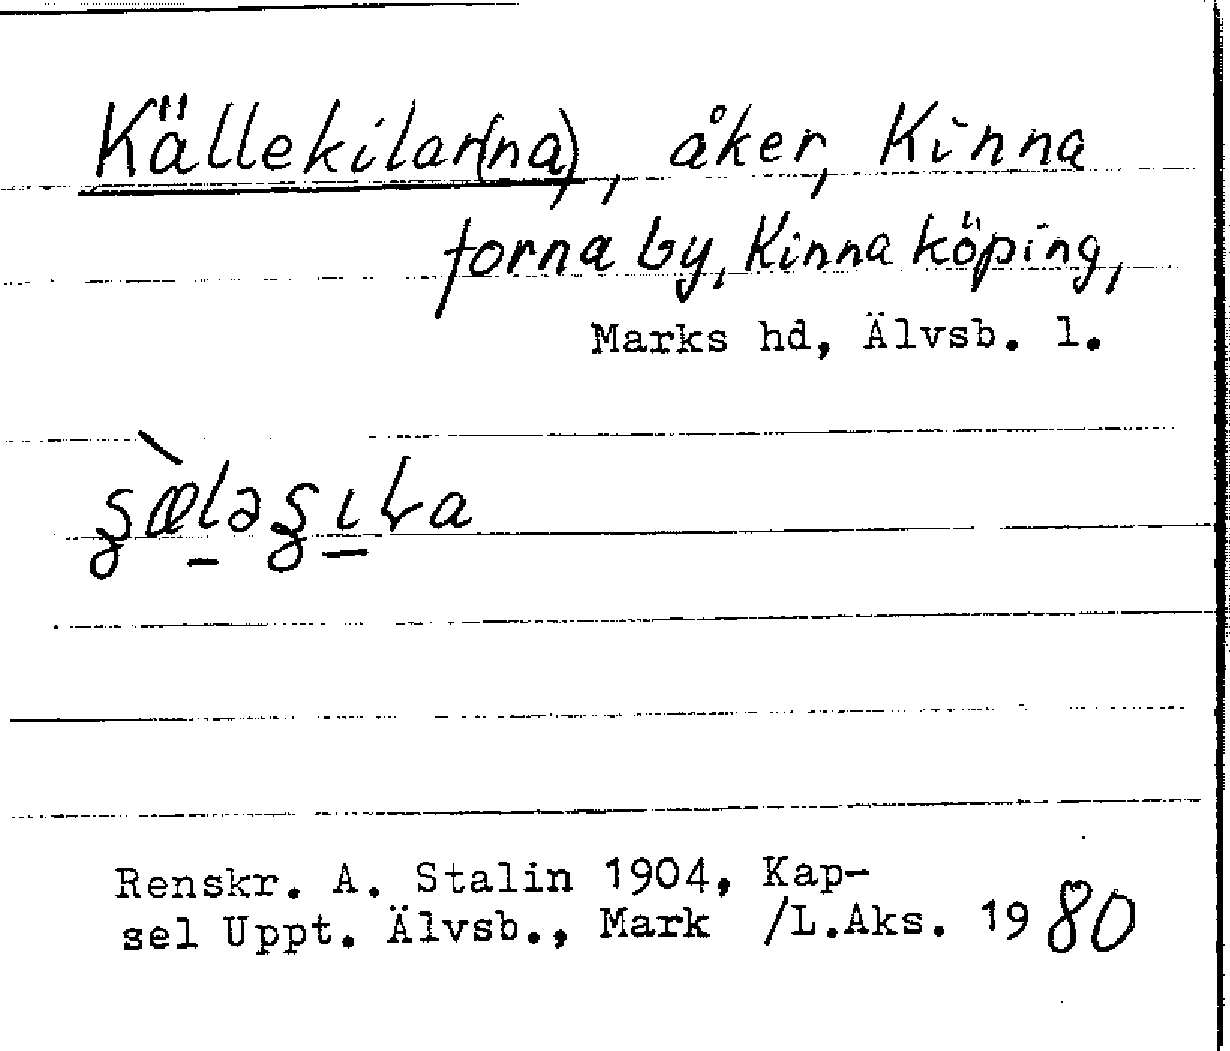 Källekilar(na), åker, Kinna
forna by, Kinna köping,
Marks hd, Älvsb. l.
Renskr. A. Stalin 1904, Kap-
sel Uppt. Älvsb., Mark /L.Aks. 1980